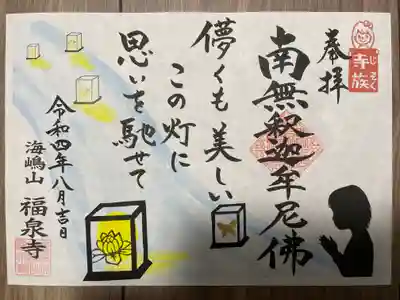 奉拝
じぞく
寺族
南無釈迦牟尼佛
儚くも美しい
この灯に
思いを馳せて
令和四年八月吉日
海嶋山 福泉寺